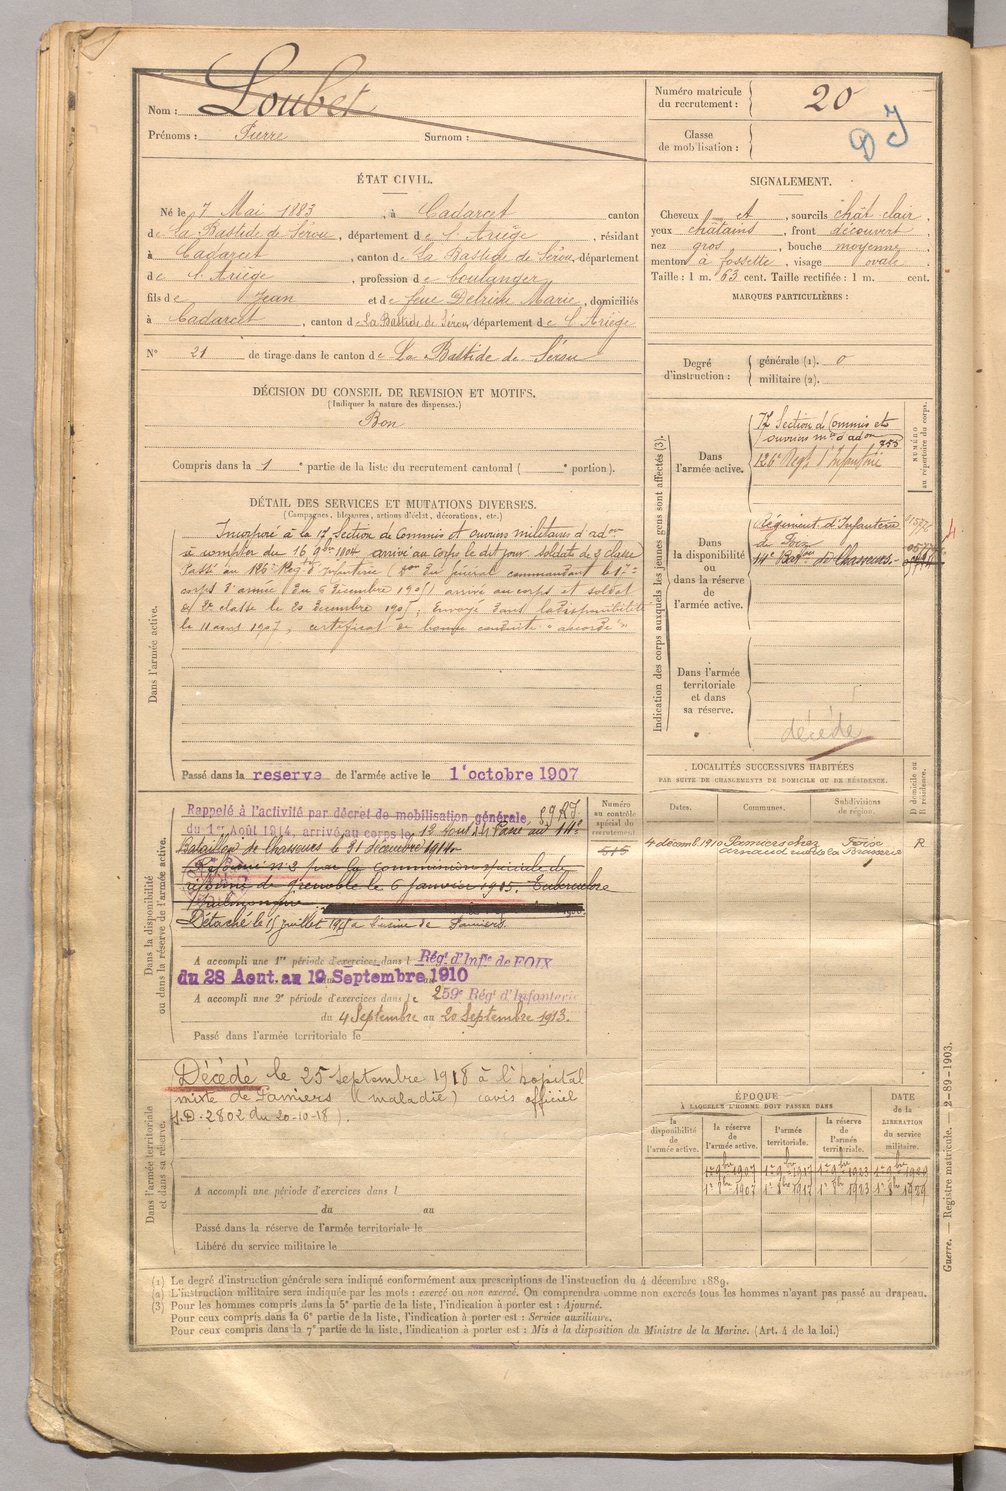 Nom : Loubet
Prénoms : Pierre Surnom :
Numéro matricule du recrutement : 20
Classe de mobilisation :
ÉTAT CIVIL.
Né le 7 Mai 1883, à Cadarcet canton
de La Bastide de Sérou, département de l'Ariège, résidant
à Cadarcet, canton de La Bastide de Sérou, département
de l'Ariège, profession de boulanger
fils de Jean et de feue Marie, domiciliés
à Cadarcet, canton de La Bastide de Sérou, département de l'Ariège
N° 21 de tirage dans le canton de La Bastide de Sérou
SIGNALEMENT.
Cheveux et, sourcils chât clair,
yeux châtains, front découvert,
nez gros, bouche moyenne,
menton à fossette, visage ovale.
Taille : 1 m. 63 cent. Taille rectifiée : 1 m. cent.
MARQUES PARTICULIÈRES :
Degré d'instruction : générale (1). 0
militaire (2).
DÉCISION DU CONSEIL DE REVISION ET MOTIFS.
(Indiquer la nature des dispenses.)
Bon
Compris dans la 1e partie de la liste du recrutement cantonal ( e portion).
DÉTAIL DES SERVICES ET MUTATIONS DIVERSES.
(Campagnes, blessures, actions d'éclat, décorations, etc.)
Dans l'armée active.
Incorporé à la 17 Section de Commis et ouvriers militaires d'adon
à compter du 16 9bre 1904 arrivé au corps le dit jour soldat de 2 classe
Passé au 126e Régt d'Infanterie (Don du général commandant le 17e
corps d'armée du 6 décembre 1905) arrivé au corps et soldat
de 2e classe le 20 décembre 1905, Envoyé dans la disponibilité
le 11 1907, certificat de bonne conduite "accordé"
Passé dans la reserve de l'armée active le 1er octobre 1907
Indication des corps auxquels les jeunes gens sont affectés (3).
NUMÉRO au répertoire du corps.
Dans l'armée active.
17 Section de Commis et
ouvriers mres d'adon 755
126e Régt d'Infanterie
Dans la disponibilité ou dans la réserve de l'armée active.
Régiment d'Infanterie
de Foix
14e Baton de Chasseurs
Dans l'armée territoriale et dans sa réserve.
décédé
Dans la disponibilité ou dans la réserve de l'armée active.
Numéro au contrôle spécial du recrutement
515
Rappelé à l'activité par décret de mobilisation générale,
du 1er Août 1914, arrivé au corps le 13 Aout 14 Passé au 14e
Bataillon de Chasseurs le 31 décembre 1914
Réformé n° 2 par la commission spéciale de
réforme de Grenoble le 6 janvier 1915. Tuberculose
Pulmonaire
Détaché le 15 juillet à l'usine de Pamiers.
A accompli une 1re période d'exercices dans l Rég. d'Infie de FOIX
du 28 Aout au 19 Septembre 1910
A accompli une 2e période d'exercices dans le 259e Rég. d'Infanterie
du 4 Septembre au 20 Septembre 1913.
Passé dans l'armée territoriale le
LOCALITÉS SUCCESSIVES HABITÉES
PAR SUITE DE CHANGEMENTS DE DOMICILE OU DE RÉSIDENCE.
D domicile ou R résidence.
Dates. Communes. Subdivisions de région.
4 décemb. 1910 Pamiers chez Foix R
Arnaud rue de la Brasserie
Dans l'armée territoriale et dans sa réserve.
Décédé le 25 Septembre 1918 à l'hopital
mixte de Pamiers (maladie) (avis officiel
J.D. 2802 du 20-10-18).
A accompli une période d'exercices dans l
du au
Passé dans la réserve de l'armée territoriale le
Libéré du service militaire le
ÉPOQUE
À LAQUELLE L'HOMME DOIT PASSER DANS
DATE de la LIBÉRATION du service militaire.
la disponibilité de l'armée active.
la réserve de l'armée active.
l'armée territoriale.
la réserve de l'armée territoriale.
1er 9bre 1907 1er 9bre 1917 1er 9bre 1923 1er 9bre 1929
1er 8bre 1907 1er 8bre 1917 1er 8bre 1923 1er 8bre 1929
Guerre. — Registre matricule. — 2-89-1903.
(1) Le degré d'instruction générale sera indiqué conformément aux prescriptions de l'instruction du 4 décembre 1889.
(2) L'instruction militaire sera indiquée par les mots : exercé ou non exercé. On comprendra comme non exercés tous les hommes n'ayant pas passé au drapeau.
(3) Pour les hommes compris dans la 5e partie de la liste, l'indication à porter est : Ajourné.
Pour ceux compris dans la 6e partie de la liste, l'indication à porter est : Service auxiliaire.
Pour ceux compris dans la 7e partie de la liste, l'indication à porter est : Mis à la disposition du Ministre de la Marine. (Art. 4 de la loi.)